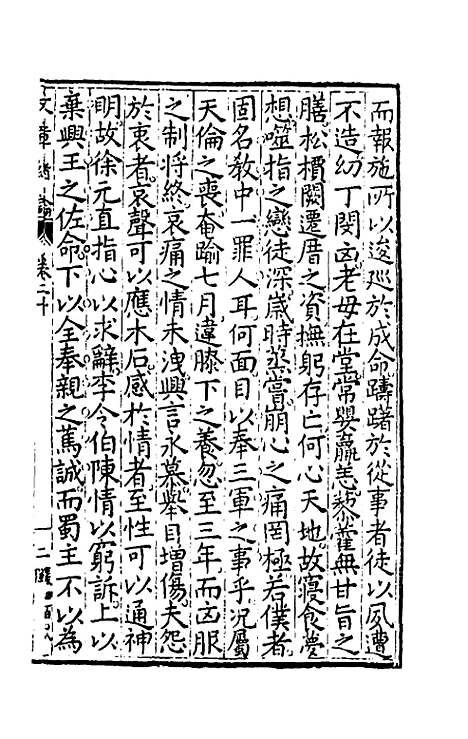 而報施所以逡廵於成命躊躇於從事者徒以夙遭
不造幼丁閔凶老母在堂常嬰羸恙藜藿無甘旨之
膳松檟闕遷厝之資撫躬存亡何心天地故寢食夢
想噬指之戀徒深歲時烝嘗崩心之痛罔極若僕者
固名敎中一罪人耳何面目以奉三軍之事乎况屬
天倫之喪奄踰七月違膝下之養忽至三年而凶服
之制將終哀痛之情未洩興言永慕舉目增傷夫怨
於衷者哀聲可以應木石感於情者至性可以通神
明故徐元直指心以求辭李令伯陳情以窮訴上以
棄興王之佐命下以全奉親之篤誠而蜀主不以爲
文章
卷二十
二